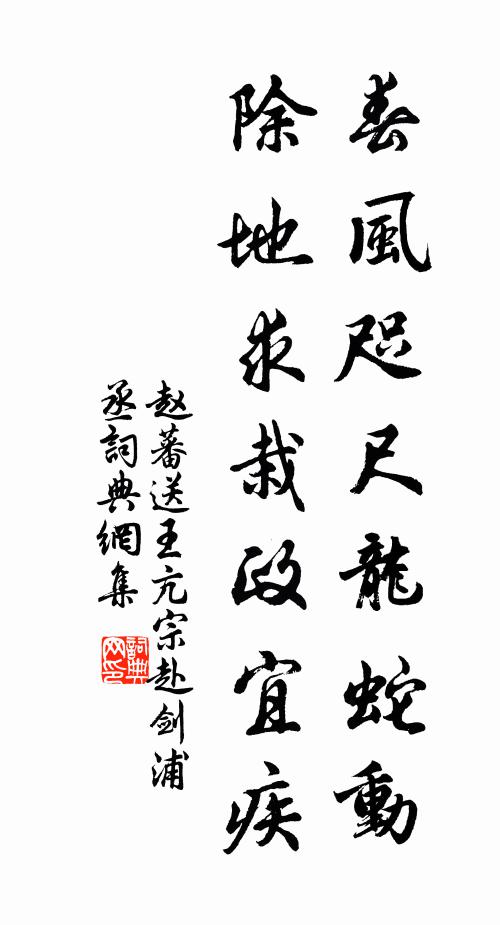 春風咫尺龍蛇動
除地求栽政宜疾
赵蕃送王亢宗赴剑浦
丞詞典網集
詞典網印